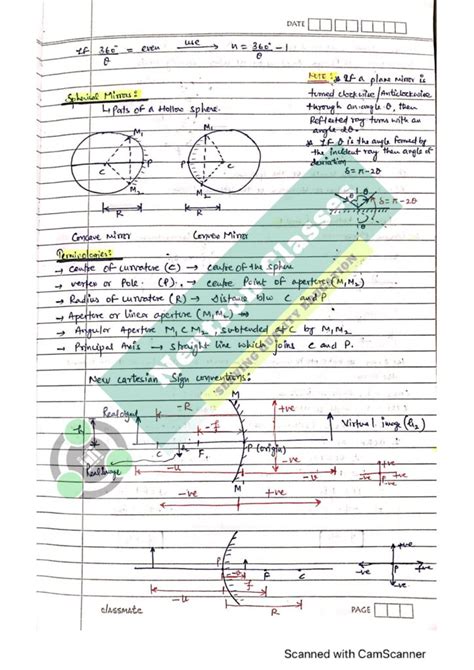 DATE
If 360°/θ = even use n = 360°/θ - 1
Spherical Mirrors:
↳ Parts of a Hollow sphere.
NOTE: * If a plane mirror is
turned clockwise/Anticlockwise
through an angle θ, then
Reflected ray turns with an
angle 2θ.
* If θ is the angle formed by
the incident ray then angle of
deviation
δ = π-2θ
M1 M1
C P P C
M2 M2
R R
θ θ δ = π-2θ
Concave Mirror Convex Mirror
Terminologies:
→ Centre of curvature (C) → centre of the sphere
→ vertex or Pole. (P). → centre Point of aperture (M1M2)
→ Radius of curvature (R) → Distance b/w C and P
→ Aperture or linear aperture (M1M2)
→ Angular Aperture M1CM2, subtended at C by M1M2
→ Principal Axis → straight line which joins C and P.
New cartesian Sign conventions:
M
-R +ve
Real object -f
h C F P (origin) Virtual image (I2)
Real Image -u -ve +ve
M' -ve P +ve
-ve +ve -ve
+ve
P F C -ve P +ve
-u f -ve
R
classmate PAGE
Newton Classes
SHINING QUALITY EDUCATION
Scanned with CamScanner